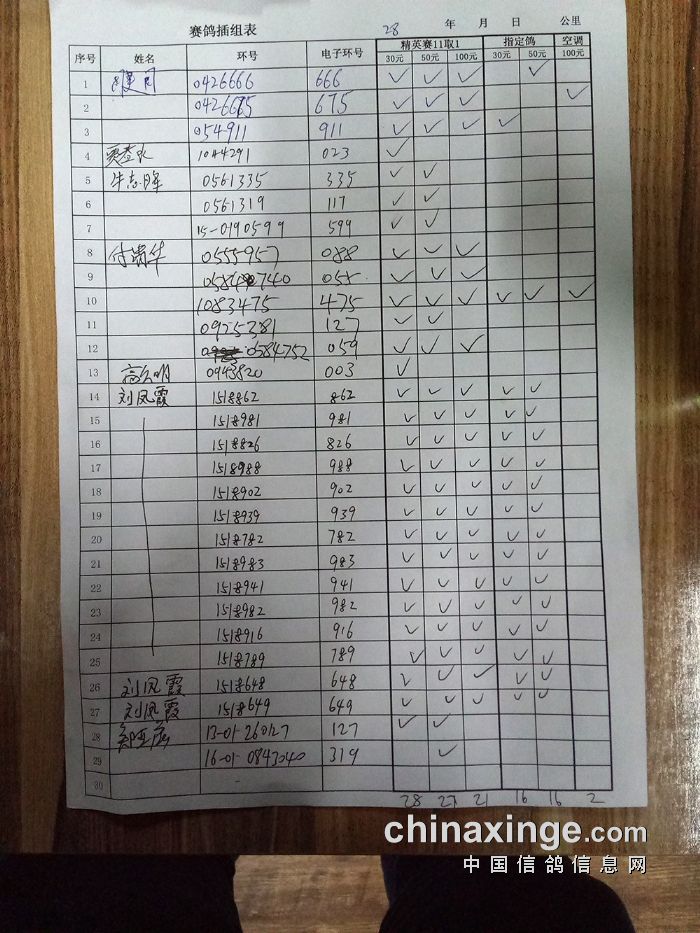 赛鸽插组表 28 年 月 日 公里
序号 姓名 环号 电子环号 精英赛11取1 指定鸽 空调
30元 50元 100元 30元 50元 100元
1 0426666 666 ✓ ✓ ✓ ✓
2 0426675 675 ✓ ✓ ✓ ✓
3 054911 911 ✓ ✓ ✓ ✓
4 1044291 023 ✓
5 牛志晖 0561335 335 ✓ ✓
6 0561319 117 ✓ ✓
7 15-0190599 599 ✓ ✓
8 0555957 088 ✓ ✓ ✓
9 740 055 ✓ ✓ ✓
10 1083475 475 ✓ ✓ ✓ ✓ ✓ ✓
11 0925381 127 ✓ ✓
12 0584752 059 ✓ ✓ ✓
13 0943820 003 ✓
14 刘凤霞 1518862 862 ✓ ✓ ✓ ✓ ✓
15 1518981 981 ✓ ✓ ✓ ✓ ✓
16 1518826 826 ✓ ✓ ✓ ✓ ✓
17 1518988 988 ✓ ✓ ✓ ✓ ✓
18 1518902 902 ✓ ✓ ✓ ✓ ✓
19 1518939 939 ✓ ✓ ✓ ✓ ✓
20 1518782 782 ✓ ✓ ✓ ✓ ✓
21 1518983 983 ✓ ✓ ✓ ✓ ✓
22 1518941 941 ✓ ✓ ✓ ✓ ✓
23 1518982 982 ✓ ✓ ✓ ✓ ✓
24 1518916 916 ✓ ✓ ✓ ✓ ✓
25 1518789 789 ✓ ✓ ✓ ✓ ✓
26 刘凤霞 1518648 648 ✓ ✓ ✓ ✓ ✓
27 刘凤霞 1518649 649 ✓ ✓ ✓ ✓ ✓
28 13-01-260127 127 ✓ ✓
29 16-01-0843040 319 ✓
30
28 27 21 16 16 2
chinaxinge.com
中国信鸽信息网